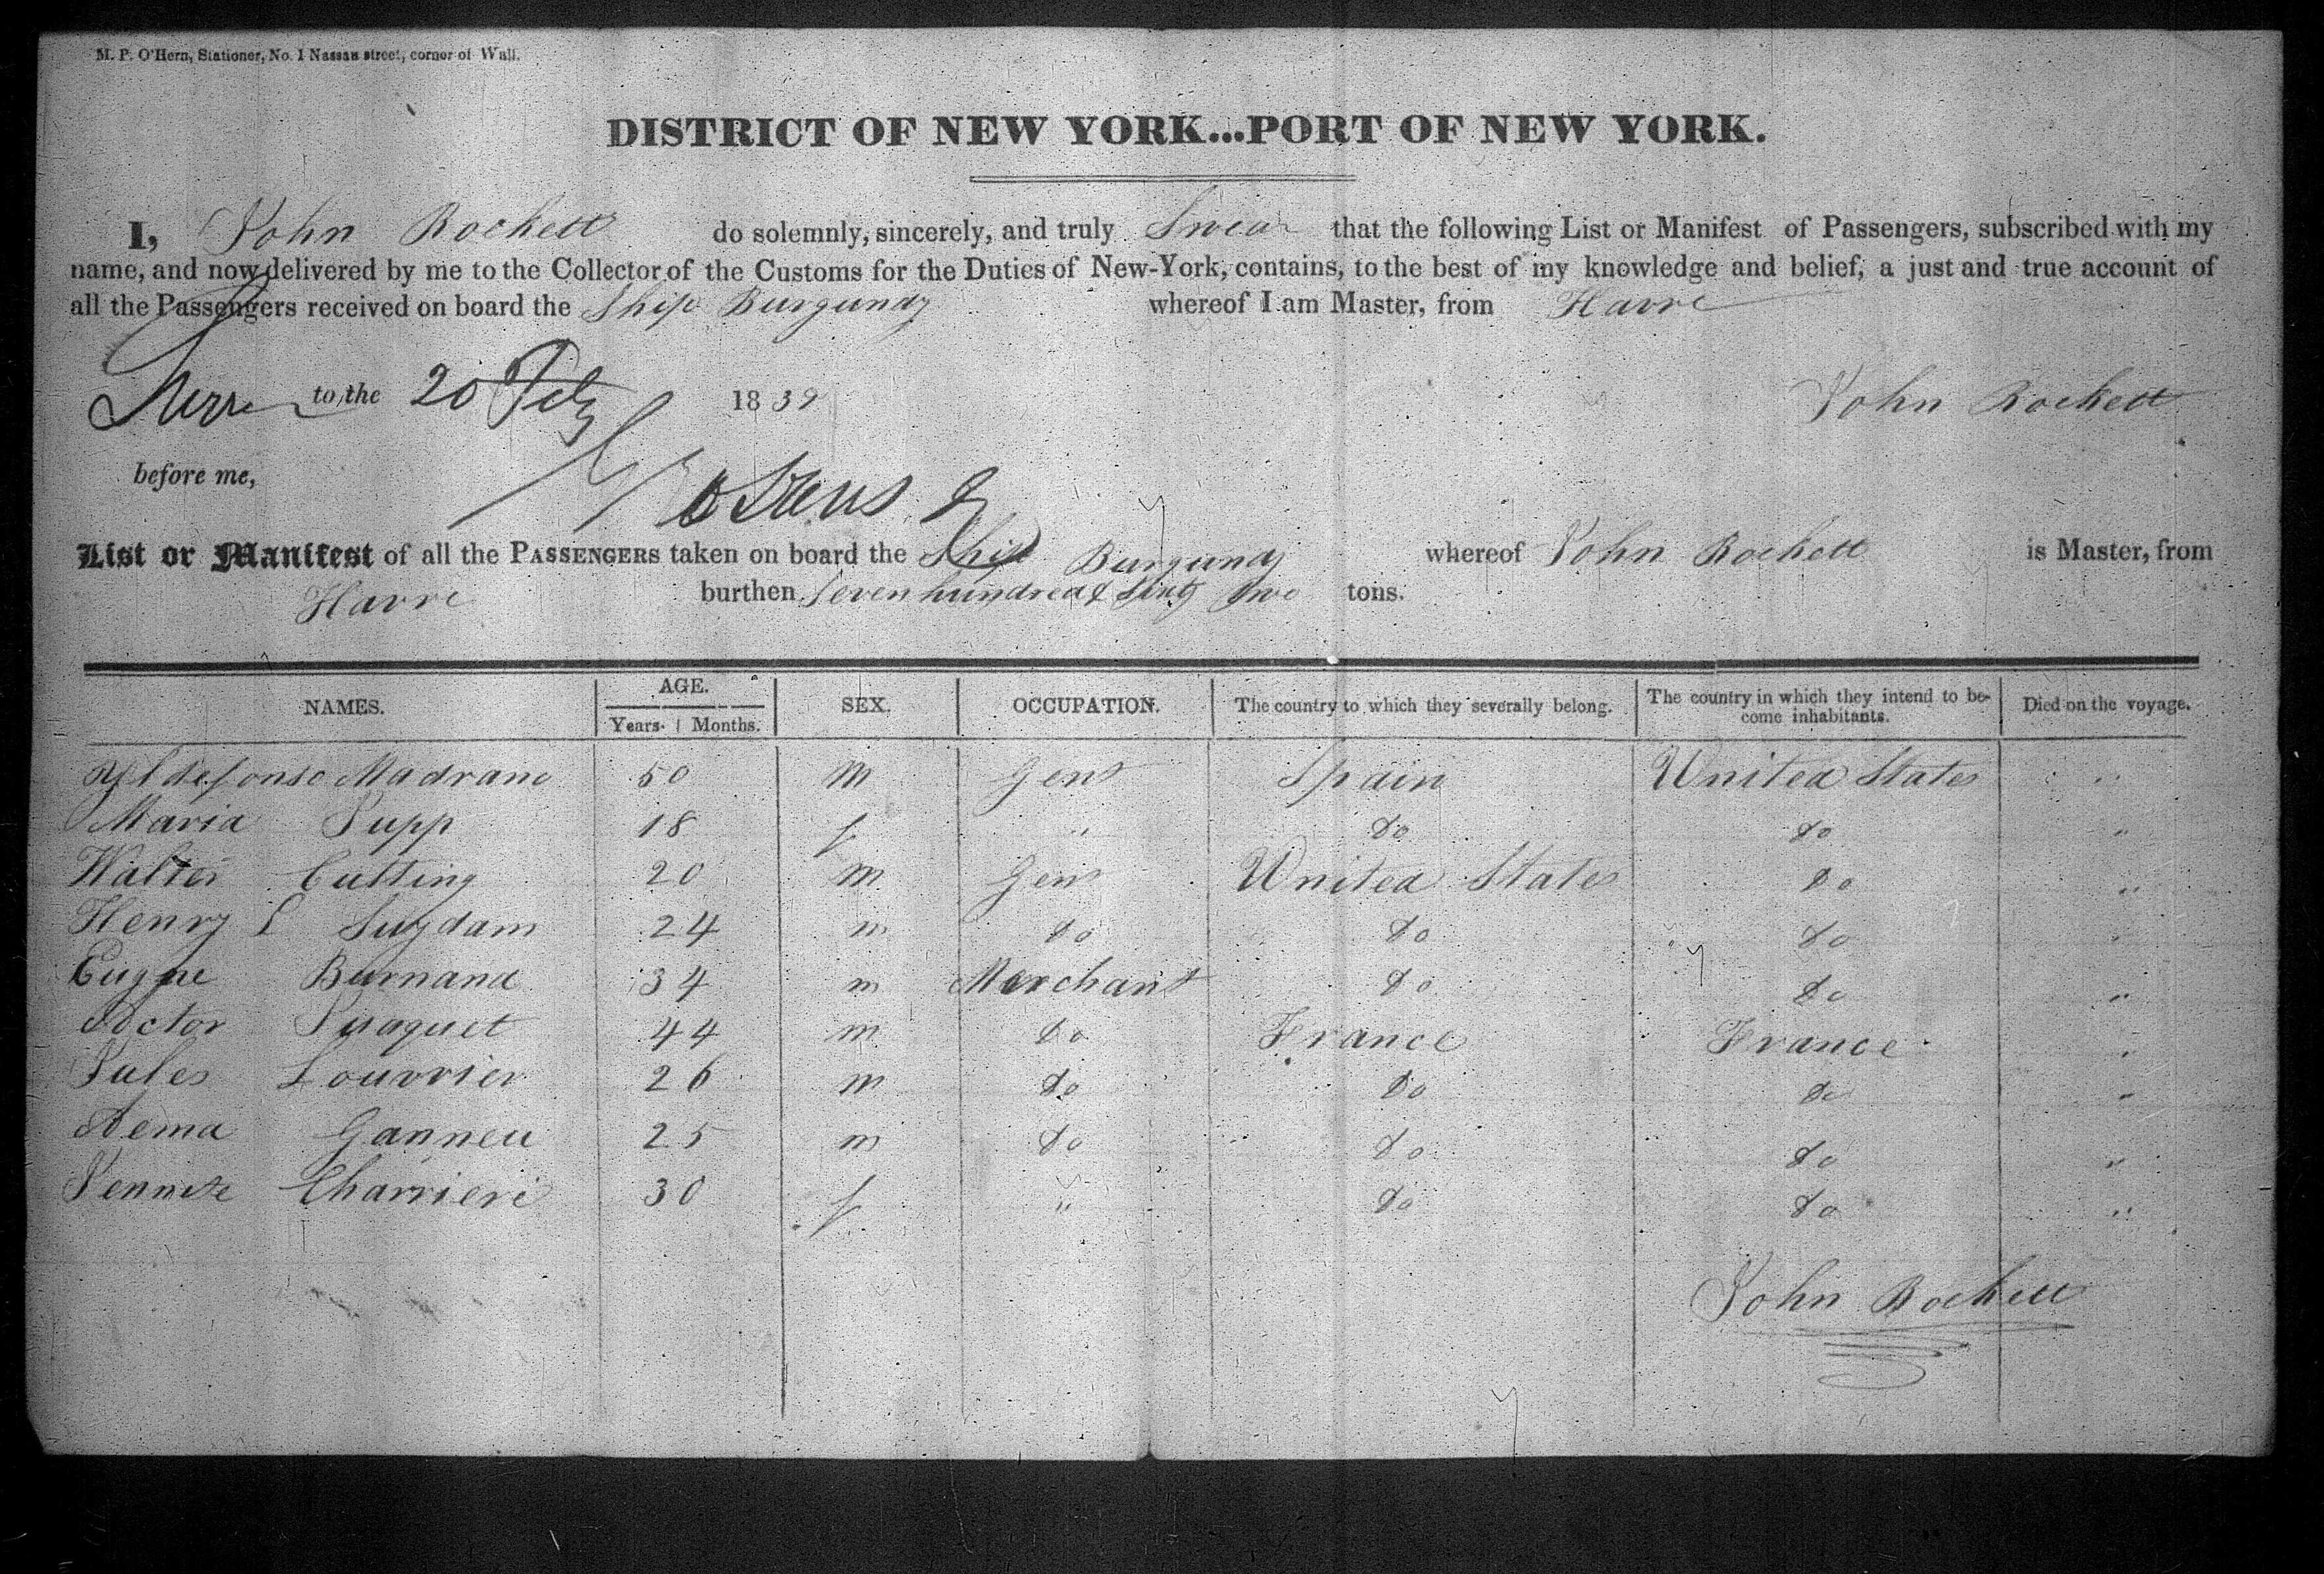 M. P. O'Hern, Stationer, No. 1 Nassau street, corner of Wall.
DISTRICT OF NEW YORK...PORT OF NEW YORK.
I, John Rockett do solemnly, sincerely, and truly Swear that the following List or Manifest of Passengers, subscribed with my
name, and now delivered by me to the Collector of the Customs for the Duties of New-York, contains, to the best of my knowledge and belief, a just and true account of
all the Passengers received on board the Ship Burgundy whereof I am Master, from Havre
to the 20 Feby 1839 John Rockett
before me,
List or Manifest of all the PASSENGERS taken on board the Ship Burgundy whereof John Rockett is Master, from
Havre burthen Seven hundred & Sixty two tons.
NAMES. AGE. SEX. OCCUPATION. The country to which they severally belong. The country in which they intend to be- Died on the voyage.
Years. Months. come inhabitants.
Yldefonso Madrano 50 m Gent Spain United States "
Maria Supp 18 f " do do "
Walter Cutting 20 m Gent United States do "
Henry L Suydam 24 m do do do "
Eugne Burnand 34 m Merchant do do "
Victor 44 m do France France "
Jules Louvrier 26 m do do do "
Ganneu 25 m do do do "
Charrieri 30 f " do do "
John Rockett